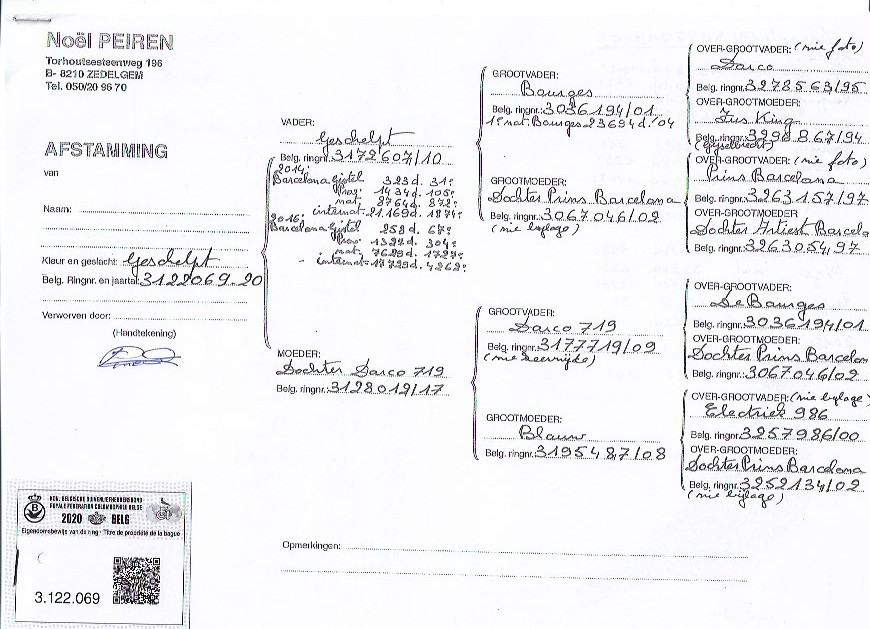 Noël PEIREN
Torhoutsesteenweg 196
B- 8210 ZEDELGEM
Tel. 050/20 96 70
AFSTAMMING
van
Naam:
Kleur en geslacht: Geschelpt
Belg. Ringnr. en jaartal: 3122069.20
Verworven door:
(Handtekening)
VADER:
Geschelpt
Belg. ringnr. 3172607/10
2014:
Barcelona Gistel 323 d. 31e
Prov. 1434 d. 105e
nat. 2764 d. 872e
internat. 21.169 d. 1874e
2016:
Barcelona Gistel 258 d. 67e
Prov. 1327 d. 304e
nat. 7629 d. 1727e
internat. 17729 d. 4262e
MOEDER:
Dochter Darco 719
Belg. ringnr. 3128019/17
GROOTVADER:
Bourges
Belg. ringnr.: 3036194/01
1e nat. Bourges 23694 d. '04
GROOTMOEDER:
Dochter Prins Barcelona
Belg. ringnr. 3067046/02
(nie bylage)
GROOTVADER:
Darco 719
Belg. ringnr. 3177719/09
GROOTMOEDER:
Blauw
Belg. ringnr. 3195487/08
OVER-GROOTVADER: (nie foto)
Darco
Belg. ringnr. 3278563/95
OVER-GROOTMOEDER:
King
Belg. ringnr. 3298867/94
OVER-GROOTVADER: (nie foto)
Prins Barcelona
Belg. ringnr. 3263157/97
OVER-GROOTMOEDER
Dochter Artiest Barcelo
Belg. ringnr. 3263054,97
OVER-GROOTVADER:
De Bourges
Belg. ringnr. 3036194/01
OVER-GROOTMOEDER:
Dochter Prins Barcelon
Belg. ringnr. 3067046/02
OVER-GROOTVADER: (nie bylage)
Electriek 986
Belg. ringnr. 3257986/00
OVER-GROOTMOEDER:
Dochter Prins Barcelona
Belg. ringnr. 3252134/02
(nie bylage)
Opmerkingen:
KON. BELGISCHE DUIVENLIEFHEBBERSBOND
ROYALE FEDERATION COLOMBOPHILE BELGE
2020 BELG
Eigendomsbewijs van de ring - Titre de propriété de la bague
3.122.069